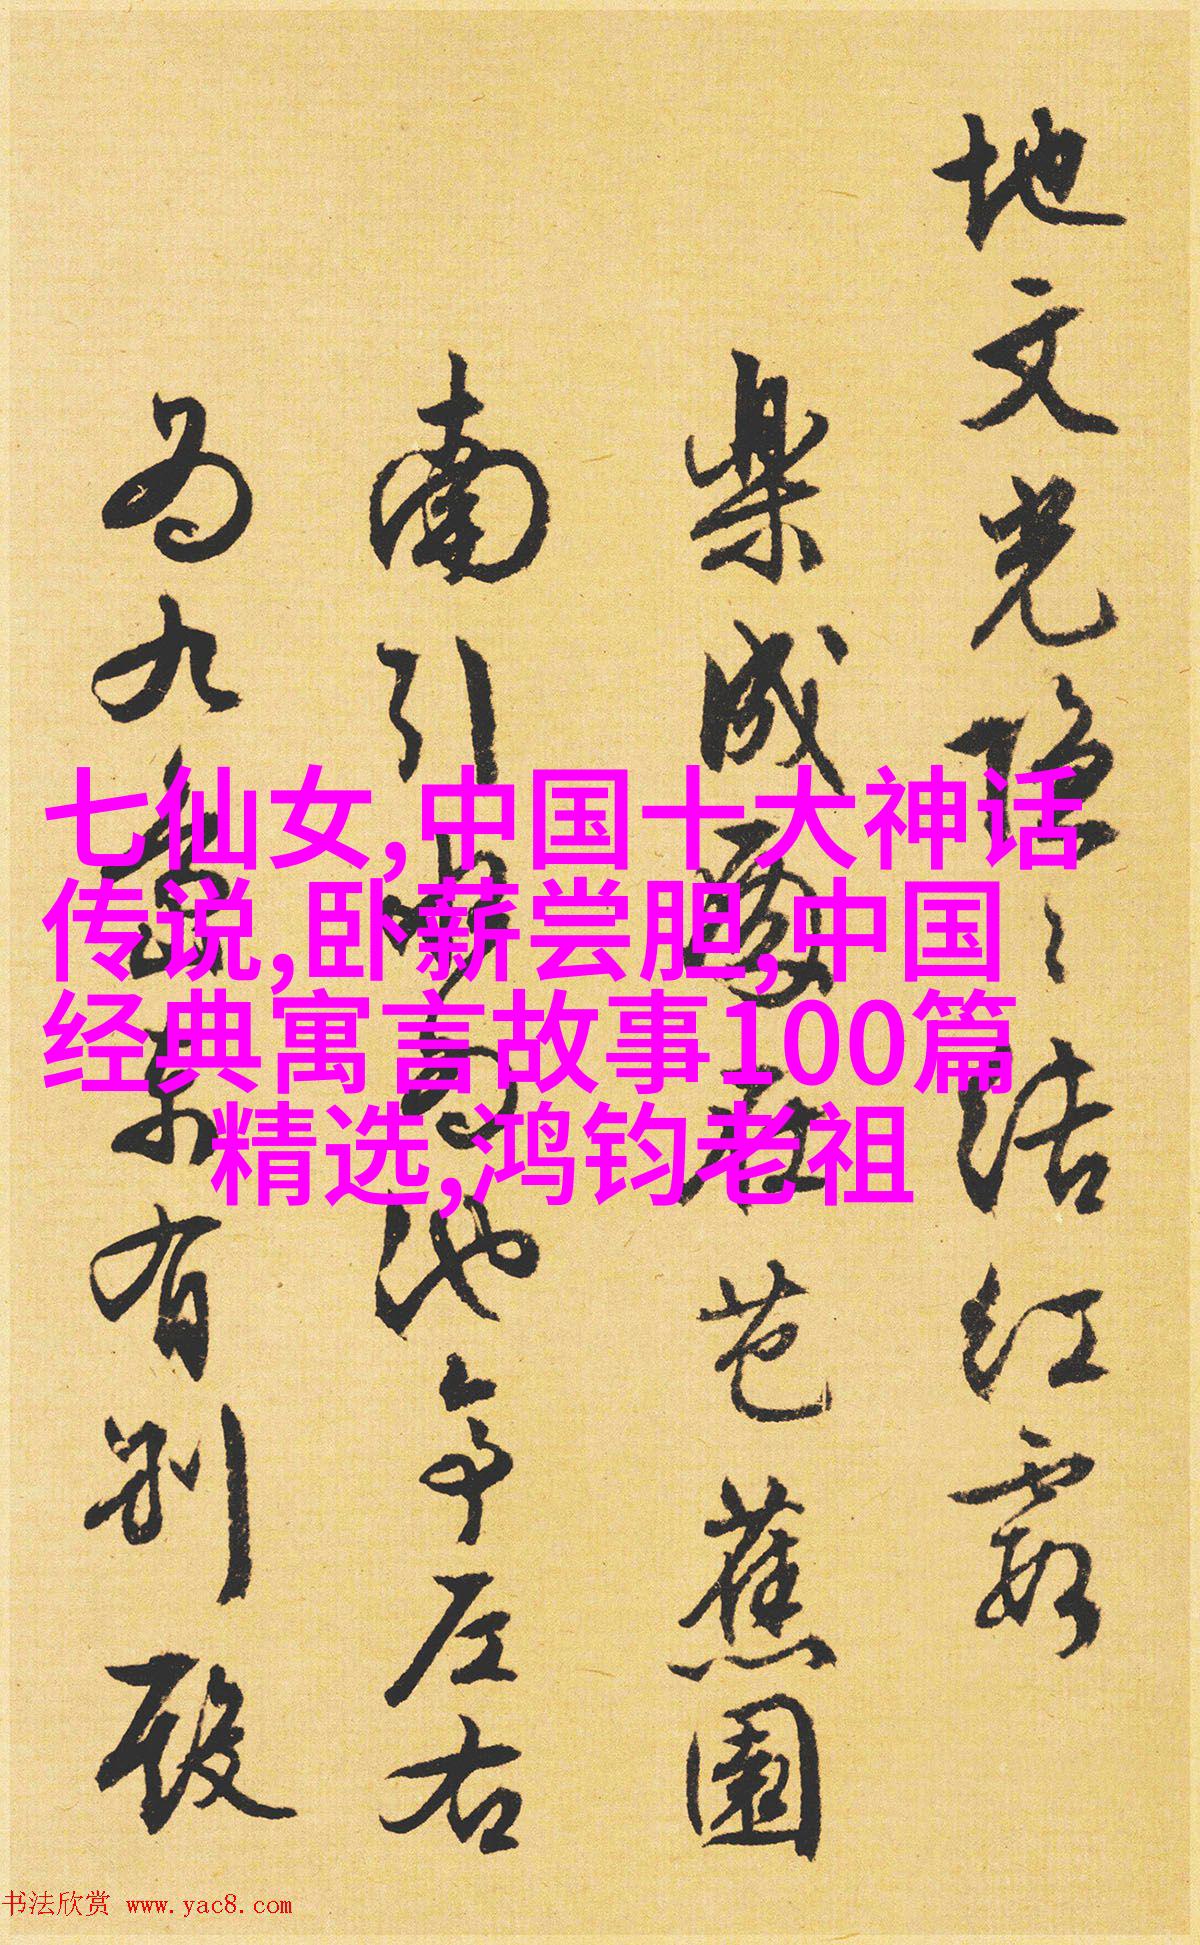 地文光隐〻结红霞
乐成 苍蕉园
南引 池今左右
为九 有别殿
七仙女,中国十大神话
传说,卧薪尝胆,中国
经典寓言故事100篇
精选,鸿钧老祖
书法欣赏 www.yac8.com